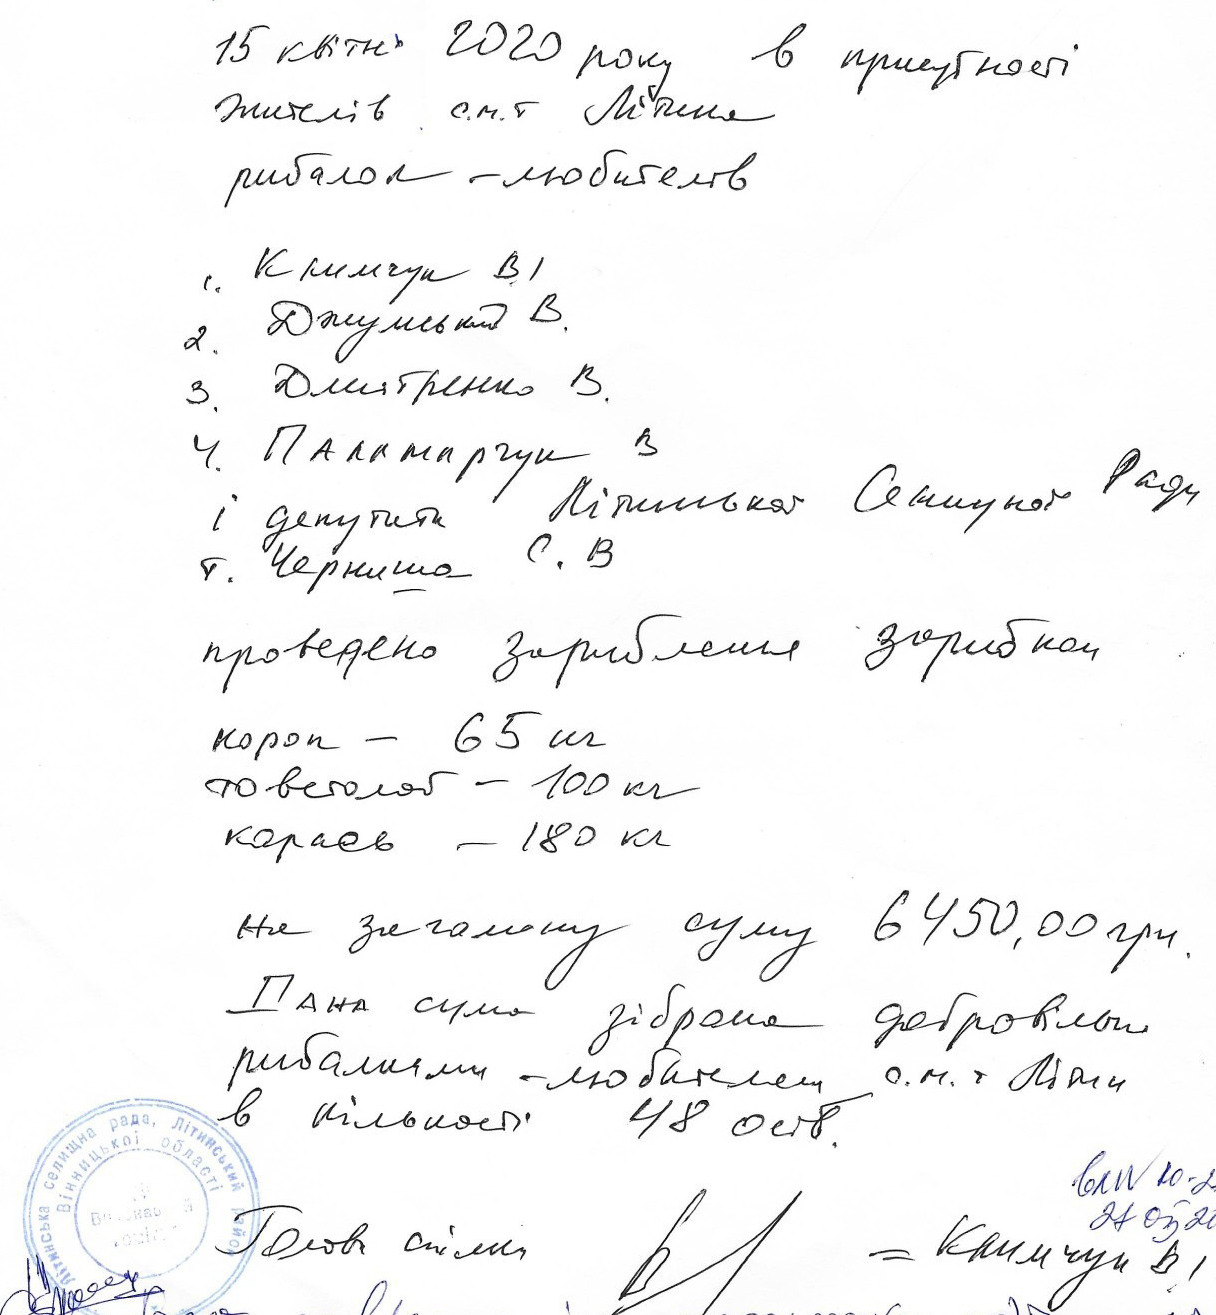 15 квітня 2020 року в присутності
жителів с.м.т Літина
рибалок - любителів
1. Климчук В І
2. Джумський В.
3. Дмитренко В.
4. Паламарчук В
і депутата Літинської Селищної Ради
т. Черниша С. В
проведено зариблення зарибком
короп - 65 кг
товстолоб - 100 кг
карась - 180 кг
на загальну суму 6450,00 грн.
Дана сума зібрана добровільно
рибалками - любителями с.м.т Літин
в кількості 48 осіб.
Літинська селищна рада, Літинський район
Вінницької області
Голова спілки = Климчук В І